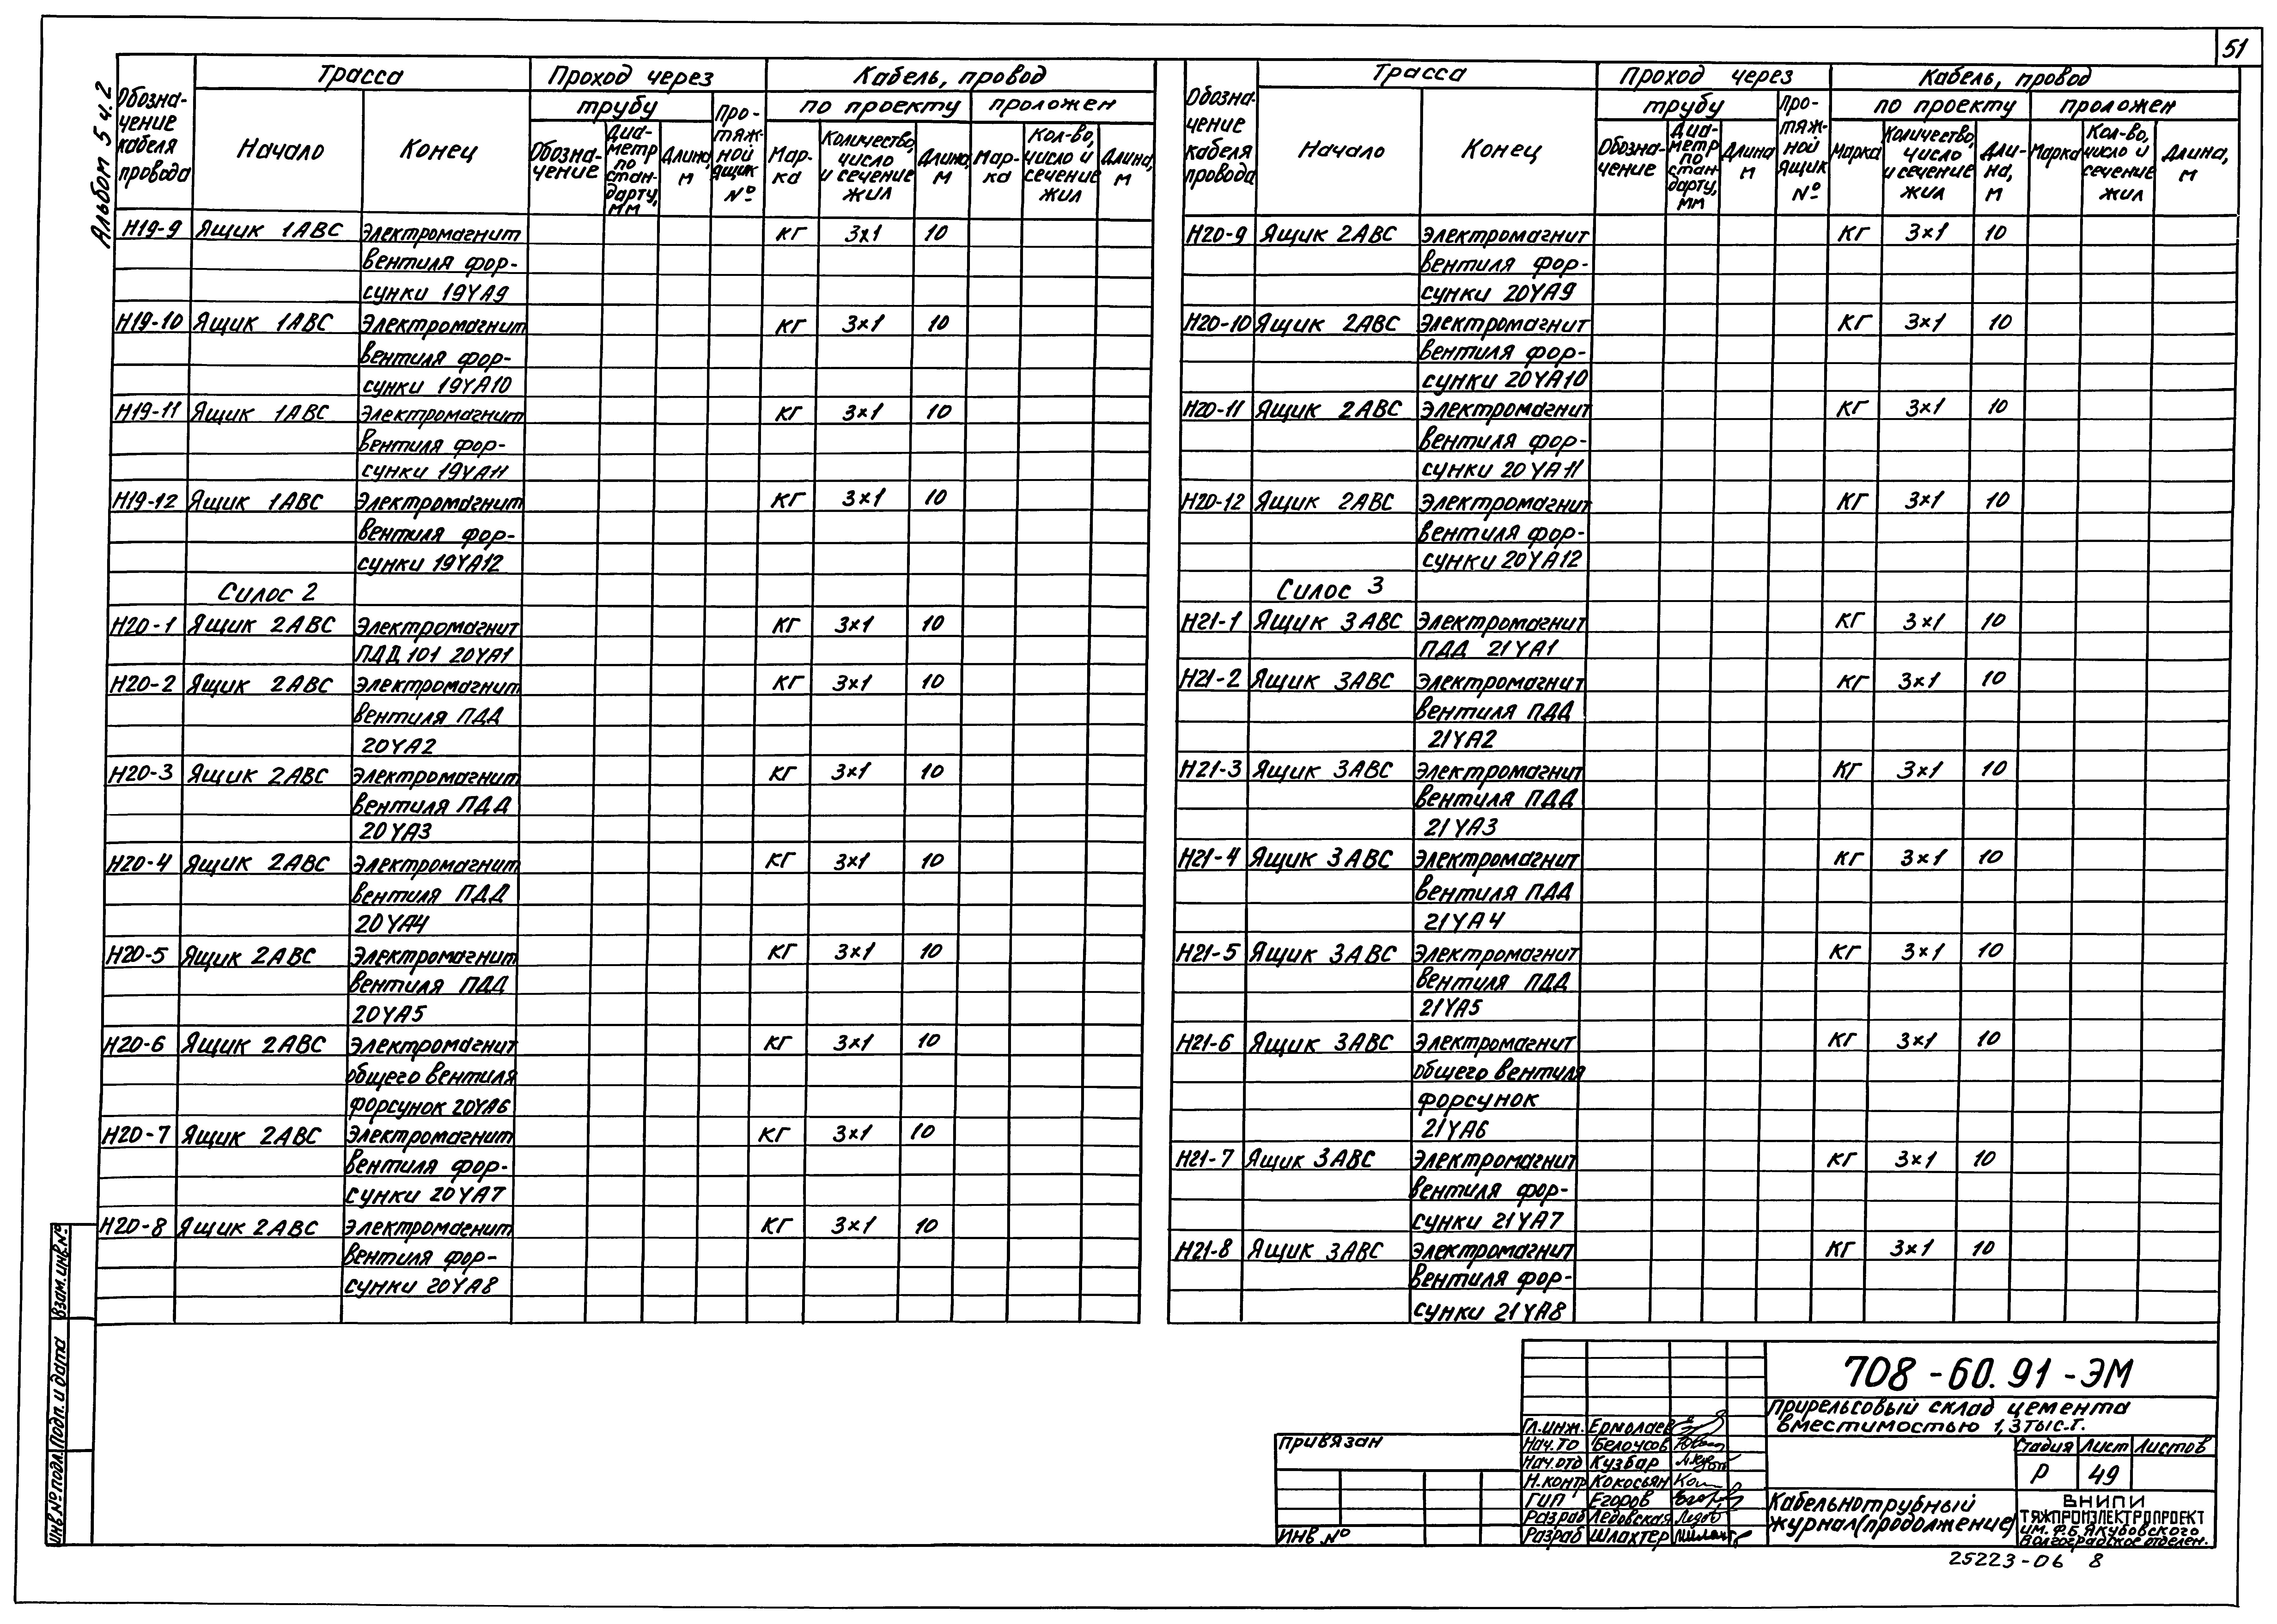 51
Альбом 5 ч.2
Обозна-
чение
кабеля
провода
Трасса
Начало
Конец
Проход через
трубу
Обозна-
чение
Диа-
метр
по
стан-
дарту,
мм
Длина,
м
Про-
тяж-
ной
ящик
№
Кабель, провод
по проекту
проложен
Мар-
ка
Количество,
число
и сечение
жил
Длина,
м
Мар-
ка
Кол-во,
число и
сечение
жил
Длина,
м
Н19-9 Ящик 1АВС Электромагнит КГ 3×1 10
вентиля фор-
сунки 19YA9
Н19-10 Ящик 1АВС Электромагнит КГ 3×1 10
вентиля фор-
сунки 19YA10
Н19-11 Ящик 1АВС Электромагнит КГ 3×1 10
вентиля фор-
сунки 19YA11
Н19-12 Ящик 1АВС Электромагнит КГ 3×1 10
вентиля фор-
сунки 19YA12
Силос 2
Н20-1 Ящик 2АВС Электромагнит КГ 3×1 10
ПДД 101 20YA1
Н20-2 Ящик 2АВС Электромагнит КГ 3×1 10
вентиля ПДД
20YA2
Н20-3 Ящик 2АВС Электромагнит КГ 3×1 10
вентиля ПДД
20YA3
Н20-4 Ящик 2АВС Электромагнит КГ 3×1 10
вентиля ПДД
20YA4
Н20-5 Ящик 2АВС Электромагнит КГ 3×1 10
вентиля ПДД
20YA5
Н20-6 Ящик 2АВС Электромагнит КГ 3×1 10
общего вентиля
форсунок 20YA6
Н20-7 Ящик 2АВС Электромагнит КГ 3×1 10
вентиля фор-
сунки 20YA7
Н20-8 Ящик 2АВС Электромагнит КГ 3×1 10
вентиля фор-
сунки 20YA8
Обозна-
чение
кабеля
провода
Трасса
Начало
Конец
Проход через
трубу
Обозна-
чение
Диа-
метр
по
стан-
дарту,
мм
Длина
м
Про-
тяж-
ной
ящик
№
Кабель, провод
по проекту
проложен
Марка
Количество,
число
и сечение
жил
Дли-
на,
м
Марка
Кол-во,
число и
сечение
жил
Длина,
м
Н20-9 Ящик 2АВС Электромагнит КГ 3×1 10
вентиля фор-
сунки 20YA9
Н20-10 Ящик 2АВС Электромагнит КГ 3×1 10
вентиля фор-
сунки 20YA10
Н20-11 Ящик 2АВС Электромагнит КГ 3×1 10
вентиля фор-
сунки 20YA11
Н20-12 Ящик 2АВС Электромагнит КГ 3×1 10
вентиля фор-
сунки 20YA12
Силос 3
Н21-1 Ящик 3АВС Электромагнит КГ 3×1 10
ПДД 21YA1
Н21-2 Ящик 3АВС Электромагнит КГ 3×1 10
вентиля ПДД
21YA2
Н21-3 Ящик 3АВС Электромагнит КГ 3×1 10
вентиля ПДД
21YA3
Н21-4 Ящик 3АВС Электромагнит КГ 3×1 10
вентиля ПДД
21YA4
Н21-5 Ящик 3АВС Электромагнит КГ 3×1 10
вентиля ПДД
21YA5
Н21-6 Ящик 3АВС Электромагнит КГ 3×1 10
общего вентиля
форсунок
21YA6
Н21-7 Ящик 3АВС Электромагнит КГ 3×1 10
вентиля фор-
сунки 21YA7
Н21-8 Ящик 3АВС Электромагнит КГ 3×1 10
вентиля фор-
сунки 21YA8
Взам.инв.№
Подп. и дата
Инв.№ подл.
Привязан
Инв.№
Гл.инж. Ермолаев
Нач.ТО Белоусов
Нач.отд Кузбар
Н.контр Кокосьян
ГИП Егоров
Разраб Ледовская
Разраб Шлахтер
708-60.91-ЭМ
Прирельсовый склад цемента
вместимостью 1,3тыс.т.
Стадия Лист Листов
Р 49
Кабельнотрубный
журнал(продолжение)
ВНИПИ
ТЯЖПРОМЭЛЕКТРОПРОЕКТ
им. Ф.Б. Якубовского
Волгоградское отделен.
25223-06 8